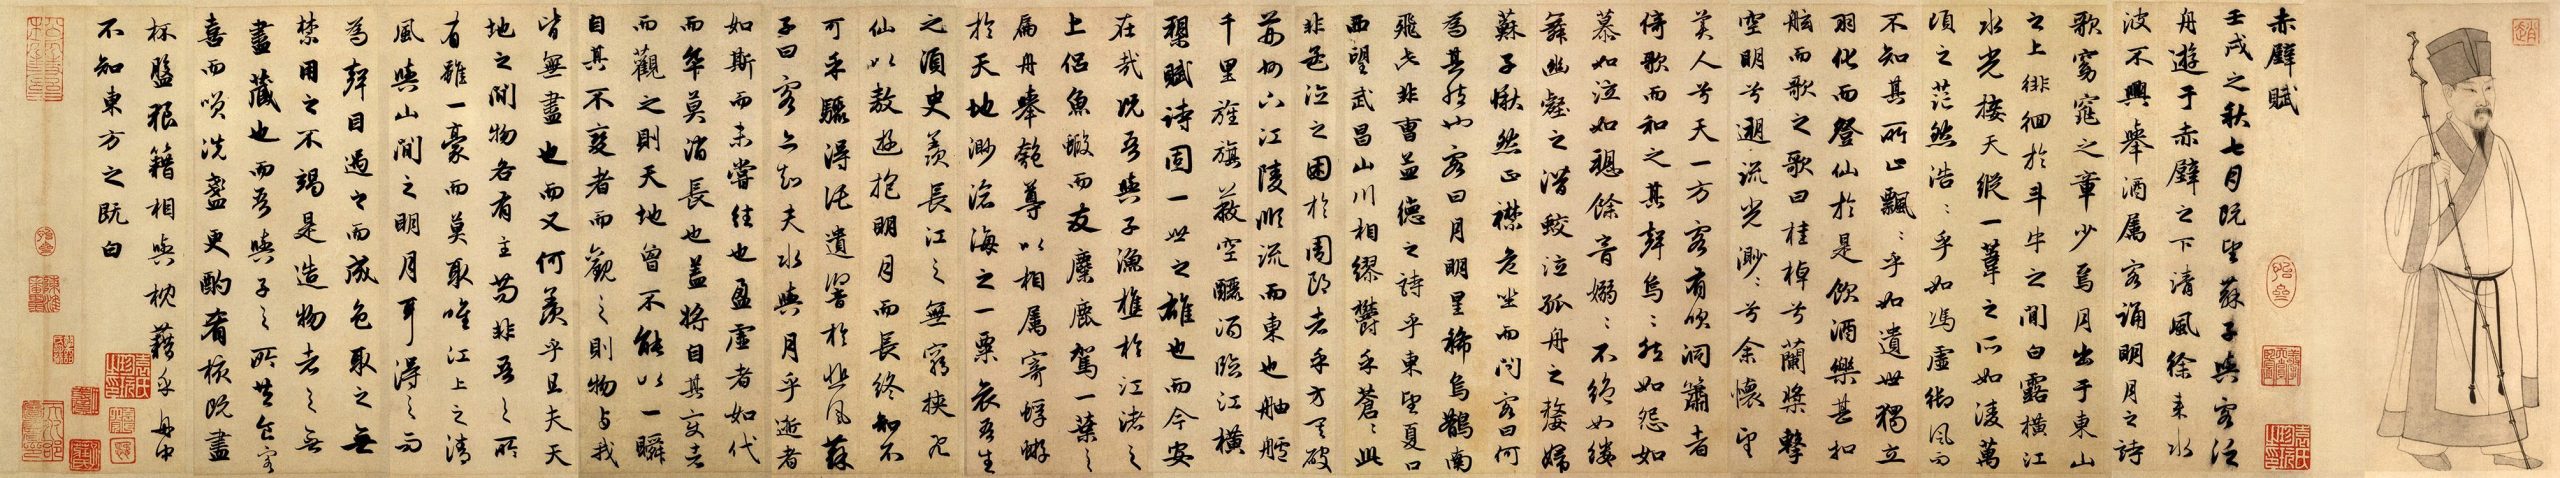 赤壁賦
壬戌之秋七月既望蘇子與客泛
舟遊于赤壁之下清風徐来水
波不興舉酒属客誦明月之詩
歌窈窕之章少焉月出于東山
之上徘徊於斗牛之間白露橫江
水光接天縱一葦之所如凌萬
頃之茫然浩〻乎如馮虛御風而
不知其所止飄〻乎如遺世獨立
羽化而登仙於是飲酒樂甚扣
舷而歌之歌曰桂棹兮蘭槳擊
空明兮遡流光渺〻兮余懷望
美人兮天一方客有吹洞簫者
倚歌而和之其聲烏〻然如怨如
慕如泣如愬餘音嫋〻不絕如縷
舞幽壑之潛蛟泣孤舟之嫠婦
蘇子愀然正襟危坐而問客曰何
為其然也客曰月明星稀烏鵲南
飛此非曹孟德之詩乎東望夏口
西望武昌山川相繆欝乎蒼〻此
非孟德之困於周郎者乎方其破
荊州下江陵順流而東也舳艫
千里旌旗蔽空釃酒臨江橫
槊賦詩固一世之雄也而今安
在哉況吾與子漁樵於江渚之
上侶魚蝦而友麋鹿駕一葉之
扁舟舉匏尊以相属寄蜉蝣
於天地渺滄海之一粟哀吾生
之須臾羨長江之無窮挾飛
仙以敖遊抱明月而長終知不
可乎驟得託遺響於悲風蘇
子曰客亦知夫水與月乎逝者
如斯而未嘗往也盈虛者如代
而卒莫消長也盖將自其變者
而觀之則天地曾不能以一瞬
自其不變者而觀之則物与我
皆無盡也而又何羨乎且夫天
地之間物各有主苟非吾之所
有雖一豪而莫取唯江上之清
風與山間之明月耳得之而
為聲目遇之而成色取之無
禁用之不竭是造物者之無
盡藏也而吾與子之所共食客
喜而咲洗盞更酌肴核既盡
杯盤狼籍相與枕藉乎舟中
不知東方之既白